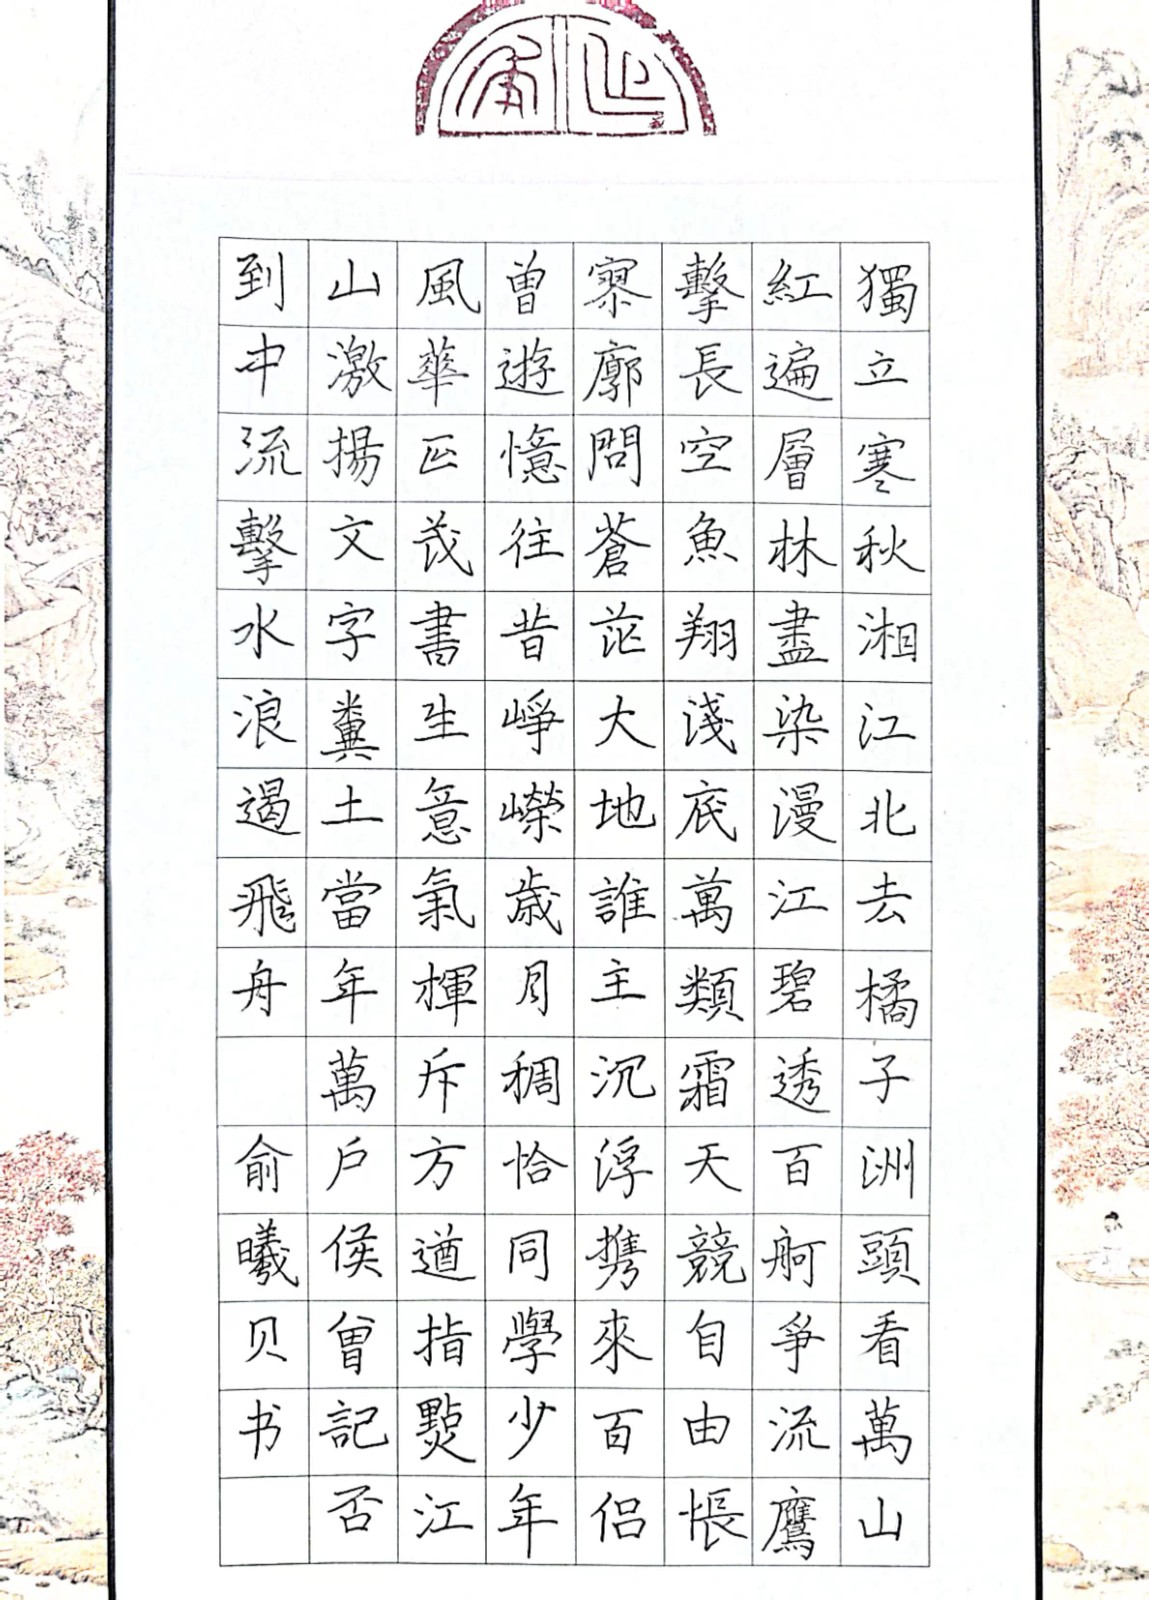 獨立寒秋湘江北去橘子洲頭看萬山
紅遍層林盡染漫江碧透百舸爭流鷹
擊長空魚翔淺底萬類霜天競自由悵
寥廓問蒼茫大地誰主沉浮携來百侣
曾遊憶往昔崢嶸歲月稠恰同學少年
風華正茂書生意氣揮斥方遒指點江
山激揚文字糞土當年萬户侯曾記否
到中流擊水浪遏飛舟 俞曦贝书